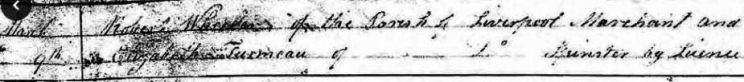 Robert of the Parish of Liverpool Merchant and
9th Elizabeth Turmeau of Do Spinster by Licence